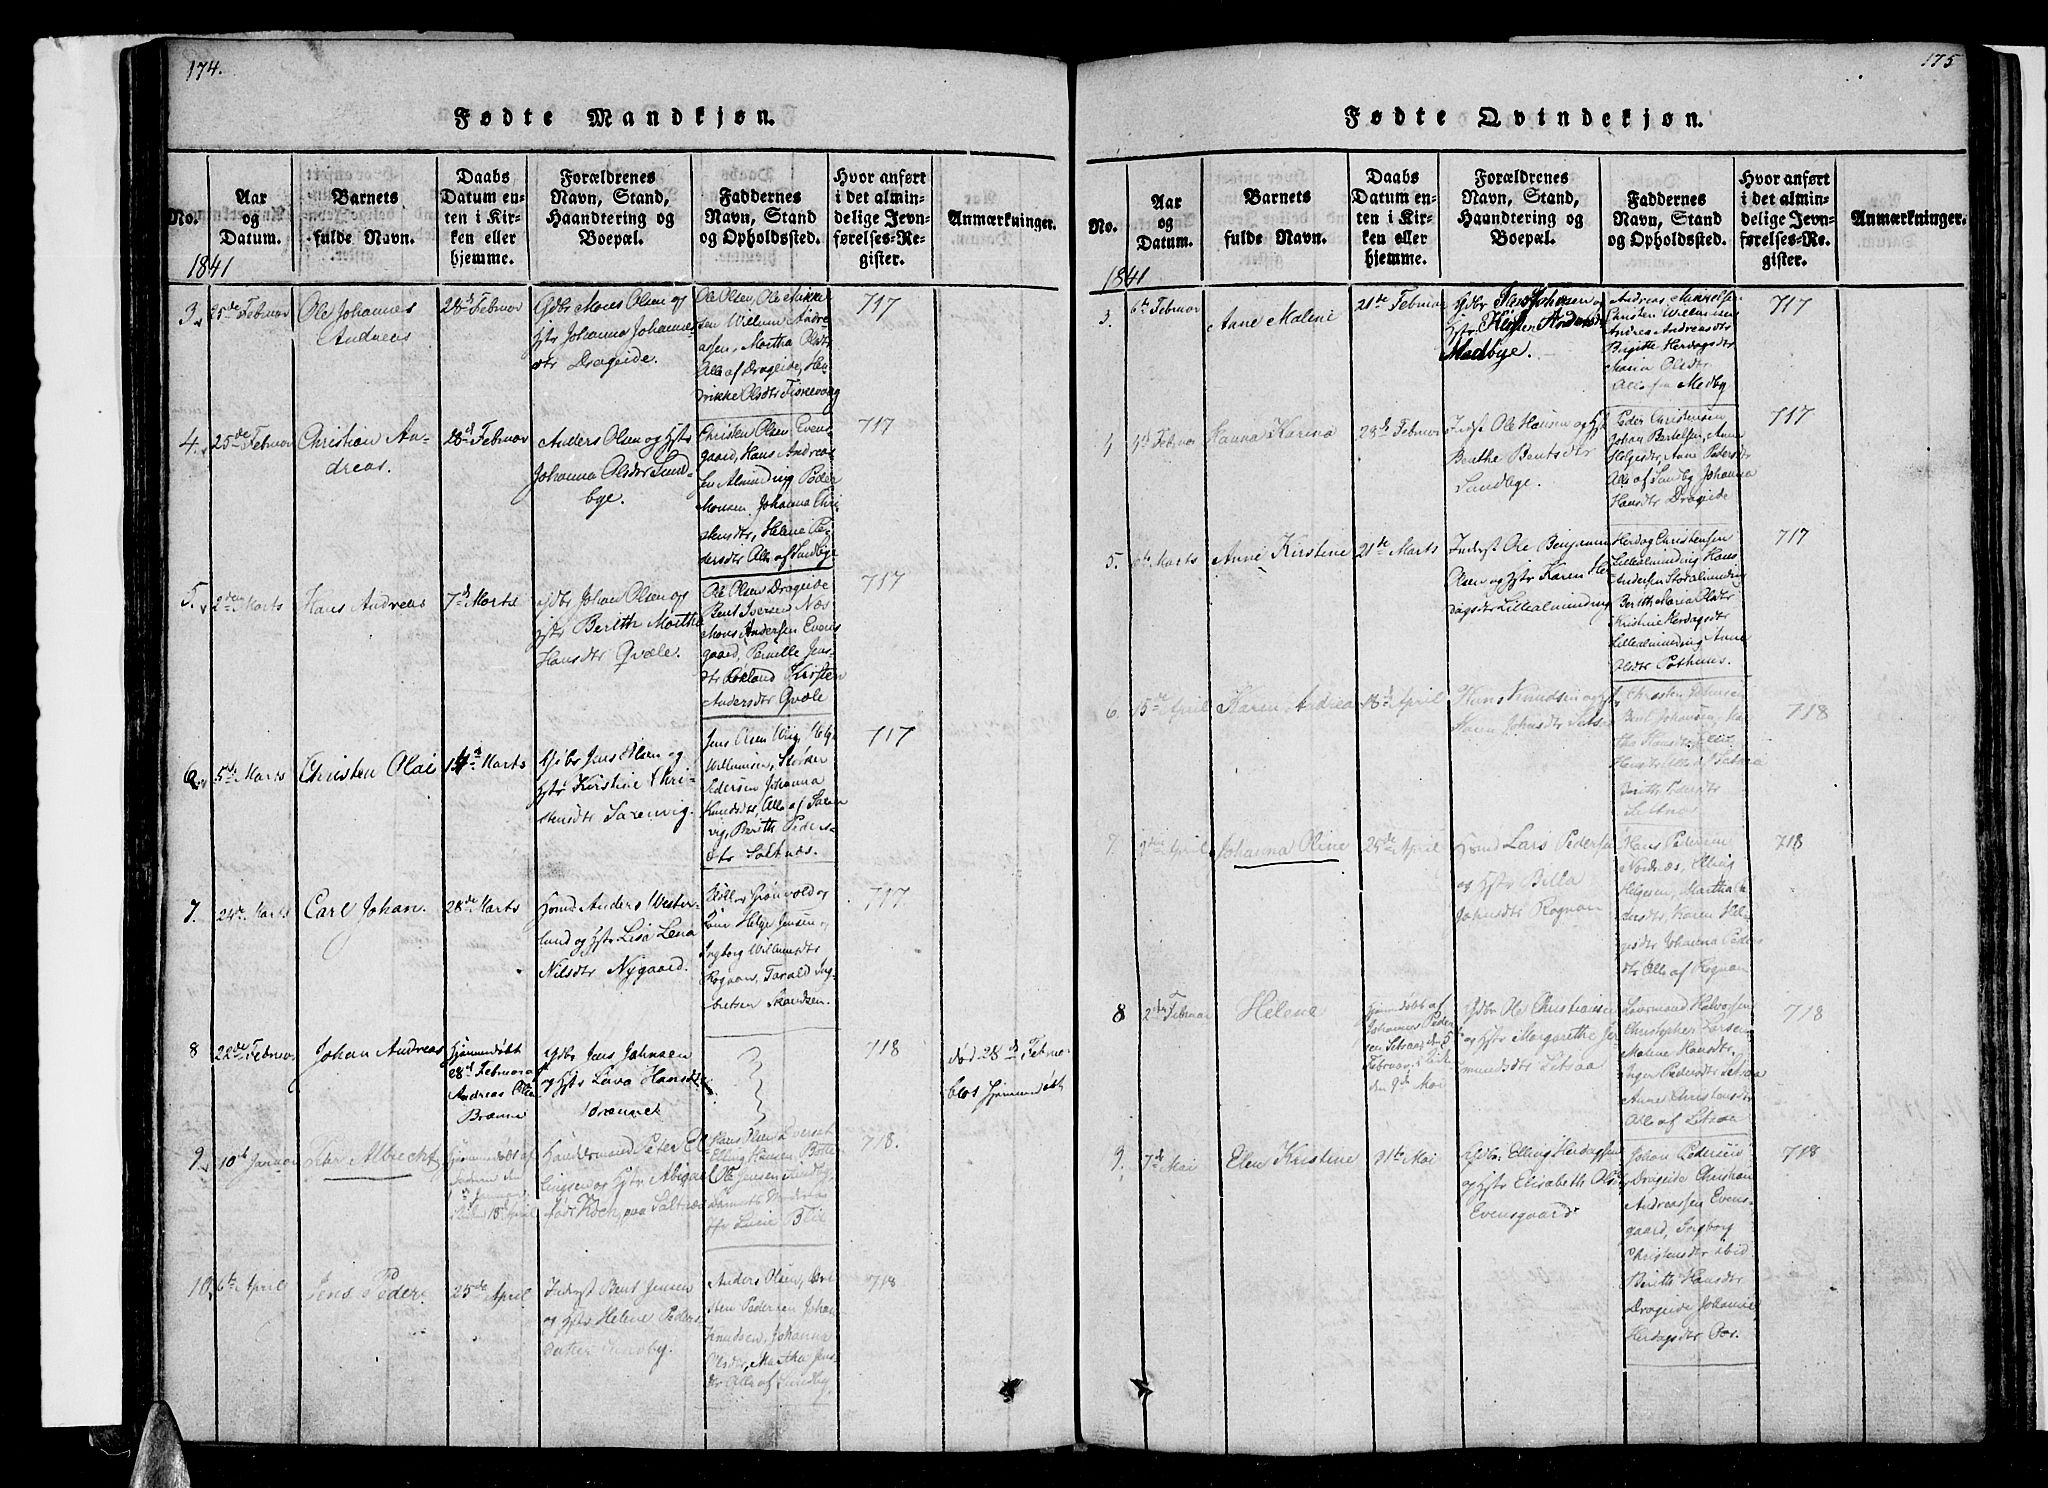 174.
Fødte Mandkjøn.
No.
Aar
og
Datum.
Barnets
fulde Navn.
Daabs
Datum en-
ten i Kir-
ken eller
hjemme.
Forældrenes
Navn, Stand,
Haandtering og
Boepæl.
Faddernes
Navn, Stand
og Opholdssted.
Hvor anført
i det almin-
delige Jevn-
førelses-Re-
gister.
Anmærkninger.
1841
3.
25de Februar
Ole Johannes
Andreas
28de Februar
Gdbr Mons Olsen og
Hstr Johanna Johannes
dtr Drageide.
Ole Olsen, Ole Mikke
sen Willum Andre
assen, Martha Olsdtr
Alle af Drageide, Hen
rikke Olsdtr Fiskevaag
717
4.
25de Februar
Christian An-
dreas.
28de Februar
Anders Olsen og Hstr
Johanna Olsdtr Sund-
bye.
Christen Olsen Evens-
gaard, Hans Andreas
sen Alminding Peder
Monsen, Johanna Chri
stensdtr, Helene Pe-
dersdtr Alle af Sundbye
717
5.
2den Marts
Hans Andreas
7de Marts
Gdbr Johan Olsen og
Hstr Berith Martha
Hansdtr Qvæle.
Ole Olsen Drageide
Bent Iversen Næs
Mons Andersen Evens
gaard, Pernille Jens-
dtr Løkland Kirsten
Andersdtr Qvæle
717
6.
5te Marts
Christen Olai
14de Marts
Gdbr Jens Olsen og
Hstr Kirstine Chri-
stensdtr Saxenvig.
Jens Olsen Wig, Helg
Willumsen, Størker
Pedersen Johanna
Knudsdtr, Alle af Saxen
vig, Berith Peders-
dtr Saltnæs.
717
7.
24de Marts
Carl Johan.
28de Marts
Hmd Anders Wester-
lund og Hstr Lisa Lena
Nilsdtr Nygaard.
Møller Grønvold og
Helge Jensen,
Ingborg Willumsdtr
Rognan, Tarald Ing
britsen Skandsen.
717
8
22de Februar
Johan Andreas
Hjemmedøbt
28de Februar af
Andreas Olsen
Brænne
Gdbr Jens Johnsen
og Hstr Lava Hansdtr
Brænnet
718
død 28de Februar
blot hjemmedøbt
9.
10de Januar
Peter Albrecht
Hjemmedøbt af
Kirken 18de April
Handelsmand Peter El
lingsen og Hstr Abigael
født Koch, paa Saltnæs
Hans Olsen Everset
Elling Hansen, Botten
Ole Jensen
718.
10.
6te April
Jens Peder
25de April
Inderst Bent Jensen
og Hstr Helene Peders
datter Sundby.
Anders Olsen, Chri
sten Pedersen Johan
Knudsen, Johanna
Olsdtr, Martha Jens
dtr Alle af Sundby
718
175
Fødte Qvindekjøn.
No.
Aar
og
Datum.
Barnets
fulde Navn.
Daabs
Datum en-
ten i Kir-
ken eller
hjemme.
Forældrenes
Navn, Stand,
Haandtering og
Boepæl.
Faddernes
Navn, Stand
og Opholdssted.
Hvor anført
i det almin-
delige Jevn-
førelses-Re-
gister.
Anmærkninger.
1841
3.
6te Februar
Anne Malene
21de Februar
Gdbr Hans Johnsen og
Hstr Kirsten Andersdtr
Medbye.
Andreas Mikkelsen
Christen Willumsen
Andrea Andreasdtr
Brigitte Herdagsdtr
Maria Olsdtr
Alle fra Medby
717
4
4de Februar
Hanna Karina
28de Februar
Inderst Ole Hansen og Hstr
Berthe Bentsdtr
Sundbye.
Peder Christensen
Johan Bertelsen, Anne
Helgesdtr, Anne Pedersdtr
Alle af Sundby Johanna
Hansdtr Drageide
717
5.
6te Marts
Anne Kirstine
21de Marts
Inderst Ole Benjamin
Olsen og Hstr Karen Her
dagsdtr Lillealminding
Herdag Christensen
Lillealminding Hans
Andersen Storalminding
Berith Maria Olsdtr
Kristine Herdagsdtr
Lillealminding Anne
Olsdtr Pothuus.
717
6.
15de April
Karen Andrea
18de April
Hans Knudsen og Hstr
Karen Johnsdtr
Christen
Bent Johansen, Mar
tha Hansdtr
Berith Pedersdtr
Saltnæs
718
7.
9de April
Johanna Oline
25de April
Hmd Lars Pedersen
og Hstr Billa
Johnsdtr Rognan
Hans Pedersen
Nordnæs, Elling
Helgesen, Martha An
dersdtr, Karen Hel-
gesdtr Johanna Peders
dtr Alle af Rognan
718
8
2den Februar
Helene
Hjemmedøbt af
Johannes Peder
sen Setsaa den 5
Februar, i Kirk
den 9de Mai
Gdbr Ole Christiansen
og Hstr Margarethe Je
mundsdtr Setsaa
Laurmand Halvorsen
Christopher Larsen
Malene Hansdtr,
Inger Pedersdtr Setsaa
Anne Christensdtr
Alle af Setsaa
718
9.
7de Mai
Elen Kristine
31te Mai
Gdbr Elling Herdagssen
og Hstr Elisabeth Olsdtr
Evensgaard
Johan Pedersen
Drageide Christian
Andreassen Evens-
gaard, Ingborg
Christensdtr ibid
Berith Hansdtr
Drageide Johanne
Herdagsdtr Por.
718